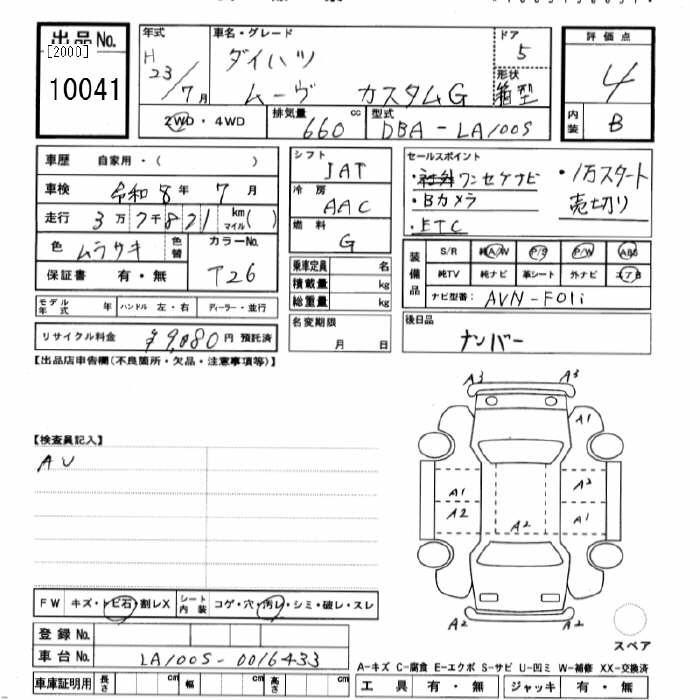 出品No.
[2000]
10041
年式 H23/7月
車名・グレード
ダイハツ
ムーヴ カスタムG
ドア 5
形状 箱型
評価点 4
内装 B
2WD・4WD
排気量 660 cc
型式 DBA-LA100S
車歴 自家用・( )
車検 令和8年7月
走行 3万7千821 km マイル( )
色 ムラサキ 色替
カラーNo. T26
保証書 有・無
モデル年式 年 ハンドル 左・右 ディーラー・並行
リサイクル料金 ¥9,080円 預託済
シフト IAT
冷房 AAC
燃料 G
乗車定員 名
積載量 kg
総重量 kg
名変期限 月 日
セールスポイント
・社外ワンセグナビ
・Bカメラ
・ETC
・1万スタート
売切り
装備品
S/R 純A/W P/S P/W ABS
純TV 純ナビ 革シート 外ナビ エアB
ナビ型番: AVN-F01i
後日品
ナンバー
【出品店申告欄(不良箇所・欠品・注意事項等)】
【検査員記入】
AU
A3 A3
A1
A1 A2
A2 A1
A2
A2 A2
スペア
FW キズ・トビ石・割レX シート内装 コゲ・穴・汚レ・シミ・破レ・スレ
登録No.
車台No. LA100S-0016433
車庫証明用 長さ cm 幅 cm 高さ cm
A-キズ C-腐食 E-エクボ S-サビ U-凹ミ W-補修 XX-交換済
工具 有・無 ジャッキ 有・無